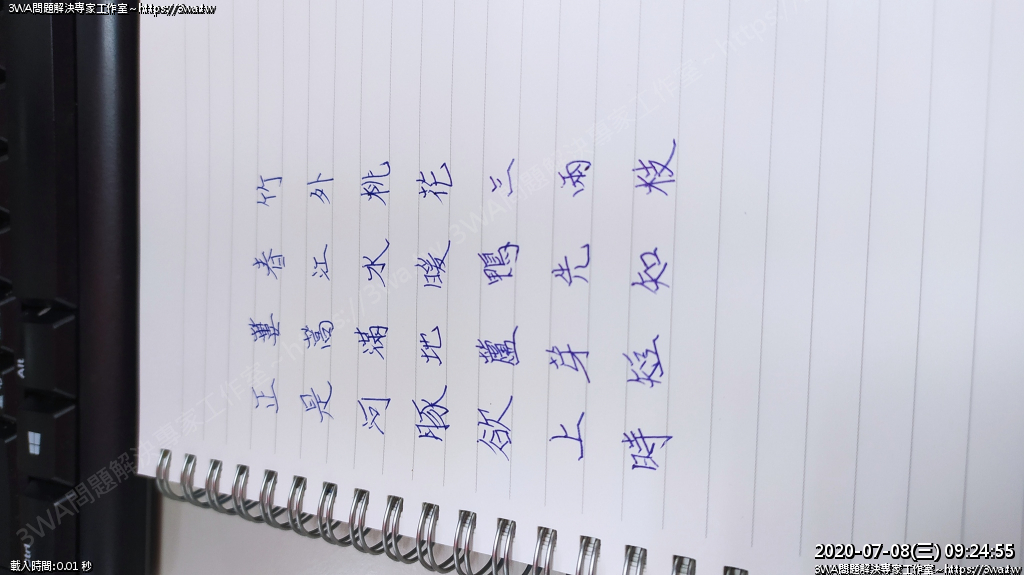 3WA問題解決專家工作室~https://3wa.tw
竹外桃花三兩枝
春江水暖鴨先知
蔞蒿滿地蘆芽短
正是河豚欲上時
Alt
Ctrl
3WA問題解決專家工作室~https://3wa.tw
載入時間:0.01 秒
2020-07-08(三) 09:24:55
3WA問題解決專家工作室~https://3wa.tw